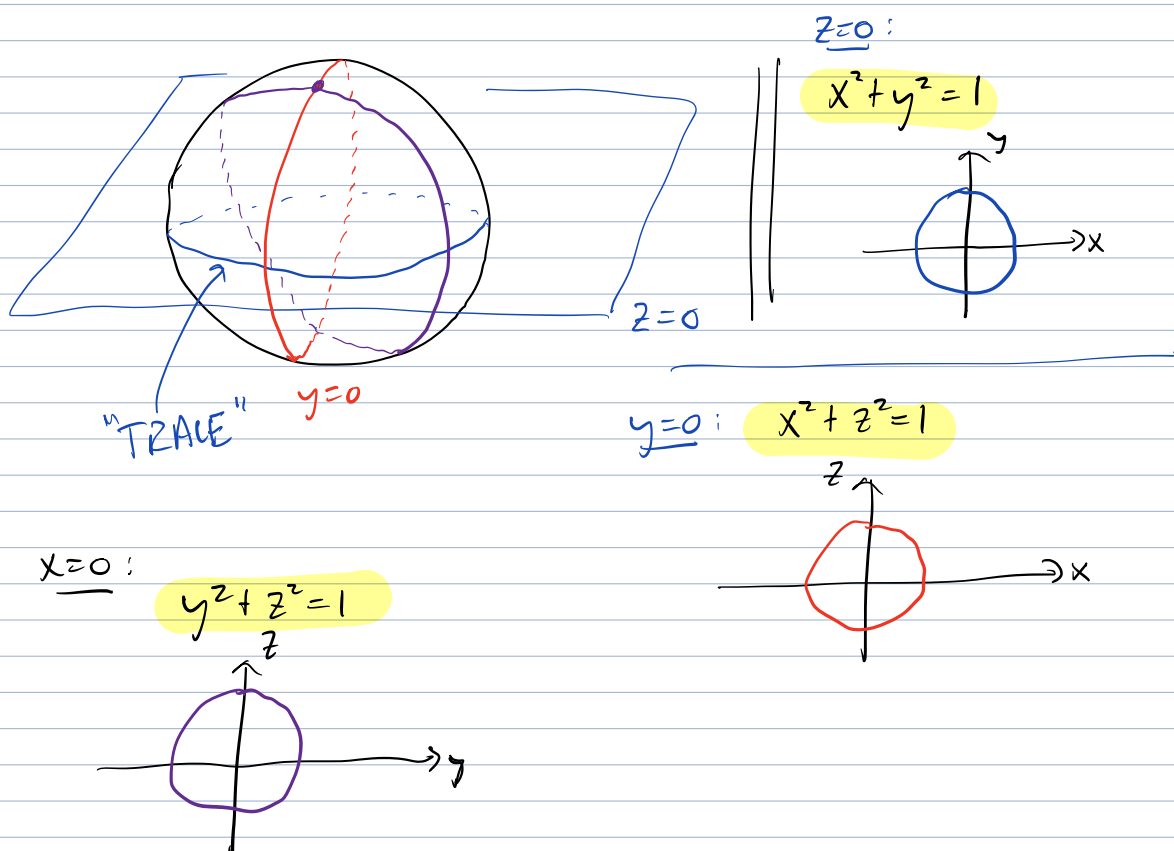 z=0:
x²+y²=1
y
x
z=0
y=0
"TRACE"
y=0:
x²+z²=1
z
x
x=0:
y²+z²=1
z
y